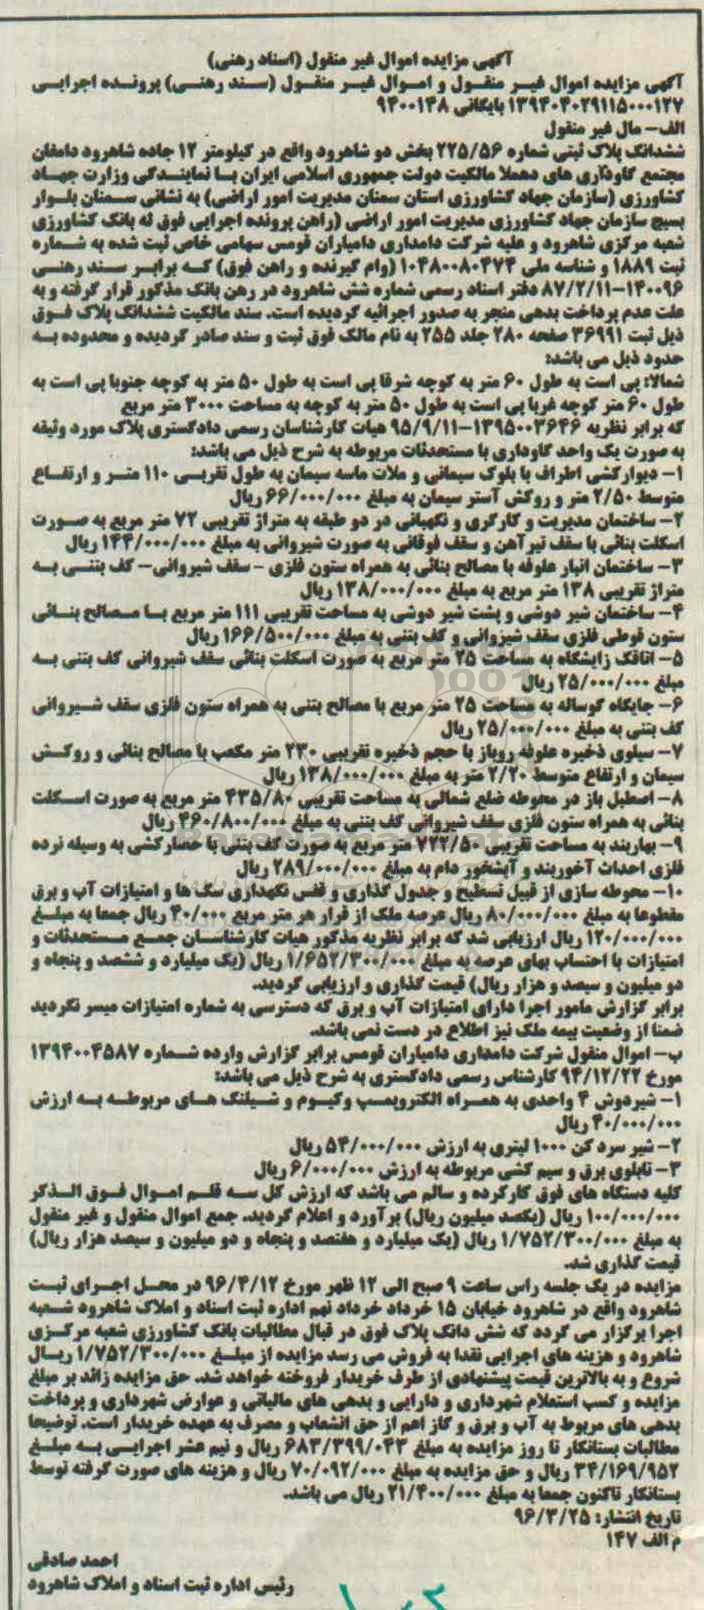 آگهی مزایده اموال غیر منقول (اسناد رهنی)
آگهی مزایده اموال غیر منقول و اموال غیر منقول (سند رهنی) پرونده اجرایی
۱۳۹۴۰۴۰۲۹۱۱۵۰۰۰۱۲۷ بایگانی ۹۴۰۰۱۴۸
الف- مال غیر منقول
ششدانگ پلاک ثبتی شماره ۲۲۵/۵۶ بخش دو شاهرود واقع در کیلومتر ۱۲ جاده شاهرود دامغان
مجتمع گاوداری های دهملا مالکیت دولت جمهوری اسلامی ایران با نمایندگی وزارت جهاد
کشاورزی (سازمان جهاد کشاورزی استان سمنان مدیریت امور اراضی) به نشانی سمنان بلوار
بسیج سازمان جهاد کشاورزی مدیریت امور اراضی (راهن پرونده اجرایی فوق له بانک کشاورزی
شعبه مرکزی شاهرود و علیه شرکت دامداری دامیاران قومس سهامی خاص ثبت شده به شماره
ثبت ۱۸۸۹ و شناسه ملی ۱۰۴۸۰۰۸۰۴۷۴ (وام گیرنده و راهن فوق) که برابر سند رهنی
۱۴۰۰۹۶-۸۷/۲/۱۱ دفتر اسناد رسمی شماره شش شاهرود در رهن بانک مذکور قرار گرفته و به
علت عدم پرداخت بدهی منجر به صدور اجرائیه گردیده است. سند مالکیت ششدانگ پلاک فوق
ذیل ثبت ۳۶۹۹۱ صفحه ۲۸۰ جلد ۲۵۵ به نام مالک فوق ثبت و سند صادر گردیده و محدوده به
حدود ذیل می باشد:
شمالا: پی است به طول ۶۰ متر به کوچه شرقا پی است به طول ۵۰ متر به کوچه جنوبا پی است به
طول ۶۰ متر کوچه غربا پی است به طول ۵۰ متر به کوچه به مساحت ۳۰۰۰ متر مربع
که برابر نظریه ۱۳۹۵۰۰۳۶۴۶-۹۵/۹/۱۱ هیات کارشناسان رسمی دادگستری پلاک مورد وثیقه
به صورت یک واحد گاوداری با مستحدثات مربوطه به شرح ذیل می باشد:
۱- دیوارکشی اطراف با بلوک سیمانی و ملات ماسه سیمان به طول تقریبی ۱۱۰ متر و ارتفاع
متوسط ۲/۵۰ متر و روکش آستر سیمان به مبلغ ۶۶/۰۰۰/۰۰۰ ریال
۲- ساختمان مدیریت و کارگری و نگهبانی در دو طبقه به متراژ تقریبی ۷۲ متر مربع به صورت
اسکلت بنائی با سقف تیرآهن و سقف فوقانی به صورت شیروانی به مبلغ ۱۴۴/۰۰۰/۰۰۰ ریال
۳- ساختمان انبار علوفه با مصالح بنائی به همراه ستون فلزی - سقف شیروانی- کف بتنی به
متراژ تقریبی ۱۳۸ متر مربع به مبلغ ۱۳۸/۰۰۰/۰۰۰ ریال
۴- ساختمان شیر دوشی و پشت شیر دوشی به مساحت تقریبی ۱۱۱ متر مربع با مصالح بنائی
ستون قوطی فلزی سقف شیروانی و کف بتنی به مبلغ ۱۶۶/۵۰۰/۰۰۰ ریال
۵- اتاقک زایشگاه به مساحت ۲۵ متر مربع به صورت اسکلت بنائی سقف شیروانی کف بتنی به
مبلغ ۲۵/۰۰۰/۰۰۰ ریال
۶- جایگاه گوساله به مساحت ۲۵ متر مربع با مصالح بتنی به همراه ستون فلزی سقف شیروانی
کف بتنی به مبلغ ۲۵/۰۰۰/۰۰۰ ریال
۷- سیلوی ذخیره علوفه روباز با حجم ذخیره تقریبی ۲۳۰ متر مکعب با مصالح بنائی و روکش
سیمان و ارتفاع متوسط ۲/۲۰ متر به مبلغ ۱۳۸/۰۰۰/۰۰۰ ریال
۸- اصطبل باز در محوطه ضلع شمالی به مساحت تقریبی ۴۳۵/۸۰ متر مربع به صورت اسکلت
بنائی به همراه ستون فلزی سقف شیروانی کف بتنی به مبلغ ۴۶۰/۸۰۰/۰۰۰ ریال
۹- بهاربند به مساحت تقریبی ۷۲۲/۵۰ متر مربع به صورت کف بتنی با حصارکشی به وسیله نرده
فلزی احداث آخوربند و آبشخور دام به مبلغ ۲۸۹/۰۰۰/۰۰۰ ریال
۱۰- محوطه سازی از قبیل تسطیح و جدول گذاری و قفس نگهداری سگ ها و امتیازات آب و برق
مقطوعا به مبلغ ۸۰/۰۰۰/۰۰۰ ریال عرصه ملک از قرار هر متر مربع ۴۰/۰۰۰ ریال جمعا به مبلغ
۱۲۰/۰۰۰/۰۰۰ ریال ارزیابی شد که برابر نظریه مذکور هیات کارشناسان جمع مستحدثات و
امتیازات با احتساب بهای عرصه به مبلغ ۱/۶۵۲/۳۰۰/۰۰۰ ریال (یک میلیارد و ششصد و پنجاه و
دو میلیون و سیصد و هزار ریال) قیمت گذاری و ارزیابی گردید.
برابر گزارش مامور اجرا دارای امتیازات آب و برق که دسترسی به شماره امتیازات میسر نگردید
ضمنا از وضعیت بیمه ملک نیز اطلاع در دست نمی باشد.
ب- اموال منقول شرکت دامداری دامیاران قومس برابر گزارش وارده شماره ۱۳۹۴۰۰۴۵۸۷
مورخ ۹۴/۱۲/۲۲ کارشناس رسمی دادگستری به شرح ذیل می باشد:
۱- شیردوش ۴ واحدی به همراه الکتروپمپ وکیوم و شیلنگ های مربوطه به ارزش
۴۰/۰۰۰/۰۰۰ ریال
۲- شیر سرد کن ۱۰۰۰ لیتری به ارزش ۵۴/۰۰۰/۰۰۰ ریال
۳- تابلوی برق و سیم کشی مربوطه به ارزش ۶/۰۰۰/۰۰۰ ریال
کلیه دستگاه های فوق کارکرده و سالم می باشد که ارزش کل سه قلم اموال فوق الذکر
۱۰۰/۰۰۰/۰۰۰ ریال (یکصد میلیون ریال) برآورد و اعلام گردید. جمع اموال منقول و غیر منقول
به مبلغ ۱/۷۵۲/۳۰۰/۰۰۰ ریال (یک میلیارد و هفتصد و پنجاه و دو میلیون و سیصد هزار ریال)
قیمت گذاری شد.
مزایده در یک جلسه راس ساعت ۹ صبح الی ۱۲ ظهر مورخ ۹۶/۴/۱۲ در محل اجرای ثبت
شاهرود واقع در شاهرود خیابان ۱۵ خرداد خرداد نهم اداره ثبت اسناد و املاک شاهرود شعبه
اجرا برگزار می گردد که شش دانگ پلاک فوق در قبال مطالبات بانک کشاورزی شعبه مرکزی
شاهرود و هزینه های اجرایی نقدا به فروش می رسد مزایده از مبلغ ۱/۷۵۲/۳۰۰/۰۰۰ ریال
شروع و به بالاترین قیمت پیشنهادی از طرف خریدار فروخته خواهد شد. حق مزایده زائد بر مبلغ
مزایده و کسب استعلام شهرداری و دارایی و بدهی های مالیاتی و عوارض شهرداری و پرداخت
بدهی های مربوط به آب و برق و گاز اعم از حق انشعاب و مصرف به عهده خریدار است. توضیحا
مطالبات بستانکار تا روز مزایده به مبلغ ۶۸۳/۳۹۹/۰۴۳ ریال و نیم عشر اجرایی به مبلغ
۳۴/۱۶۹/۹۵۲ ریال و حق مزایده به مبلغ ۷۰/۰۹۲/۰۰۰ ریال و هزینه های صورت گرفته توسط
بستانکار تاکنون جمعا به مبلغ ۲۱/۴۰۰/۰۰۰ ریال می باشد.
تاریخ انتشار: ۹۶/۳/۲۵
م الف ۱۴۷
احمد صادقی
رئیس اداره ثبت اسناد و املاک شاهرود